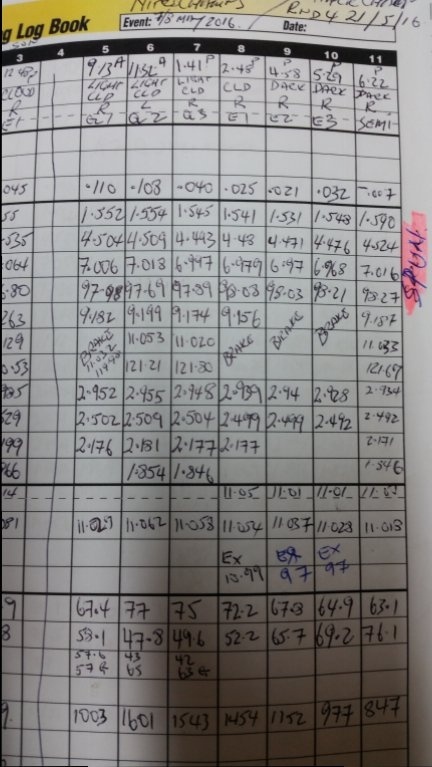 g Log Book Event: 7/8 MAY 2016. Date: RND 4 21/5/16
3 4 5 6 7 8 9 10 11
9 13 A 11 32 A 1.41 P 2.48 P 4.58 P 5.29 P 6.22
CLOUD LIGHT LIGHT LIGHT CLD DARK DARK DARK
CLD CLD
R R L R R R R R
E1 Q1 Q2 Q3 E1 E2 E3 SEMI
045 .110 .108 .040 .025 .021 .032 -.007
55 1.552 1.554 1.545 1.541 1.531 1.548 1.590
535 4.504 4.509 4.493 4.48 4.471 4.476 4.524
064 7.006 7.018 6.997 6.979 6.97 6.968 7.016
.80 97.98 97.69 97.89 98.08 98.03 98.21 98.27
SPUN
263 9.182 9.199 9.174 9.156 9.187
129 BRAKE 11.053 11.020 BRAKE BRAKE BRAKE 11.033
0.53 121.21 121.80 121.67
2.952 2.955 2.948 2.939 2.94 2.928 2.934
529 2.502 2.509 2.504 2.499 2.499 2.492 2.492
199 2.176 2.181 2.177 2.177 2.171
866 1.854 1.846 1.846
14 11.05 11.01 11.01
081 11.027 11.062 11.053 11.054 11.037 11.028 11.013
EX EX EX
10.99 97 97
9 67.4 77 75 72.2 67.3 64.9 63.1
8 53.1 47.8 49.6 52.2 65.7 69.2 76.1
57.6 43 42
57 65 63
9. 1003 1601 1543 1454 1152 977 847